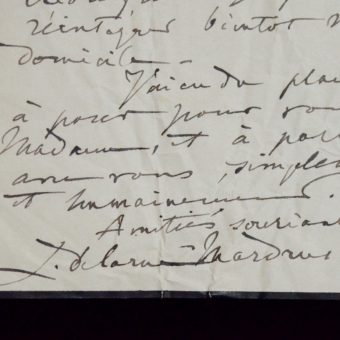 réintégrer bientôt
domicile –
J'ai eu du plai
à poser pour vo
Madame, et à pa
avec vous, simple
et humainement.
Amitiés souriant
L. Delarue-Mardrus